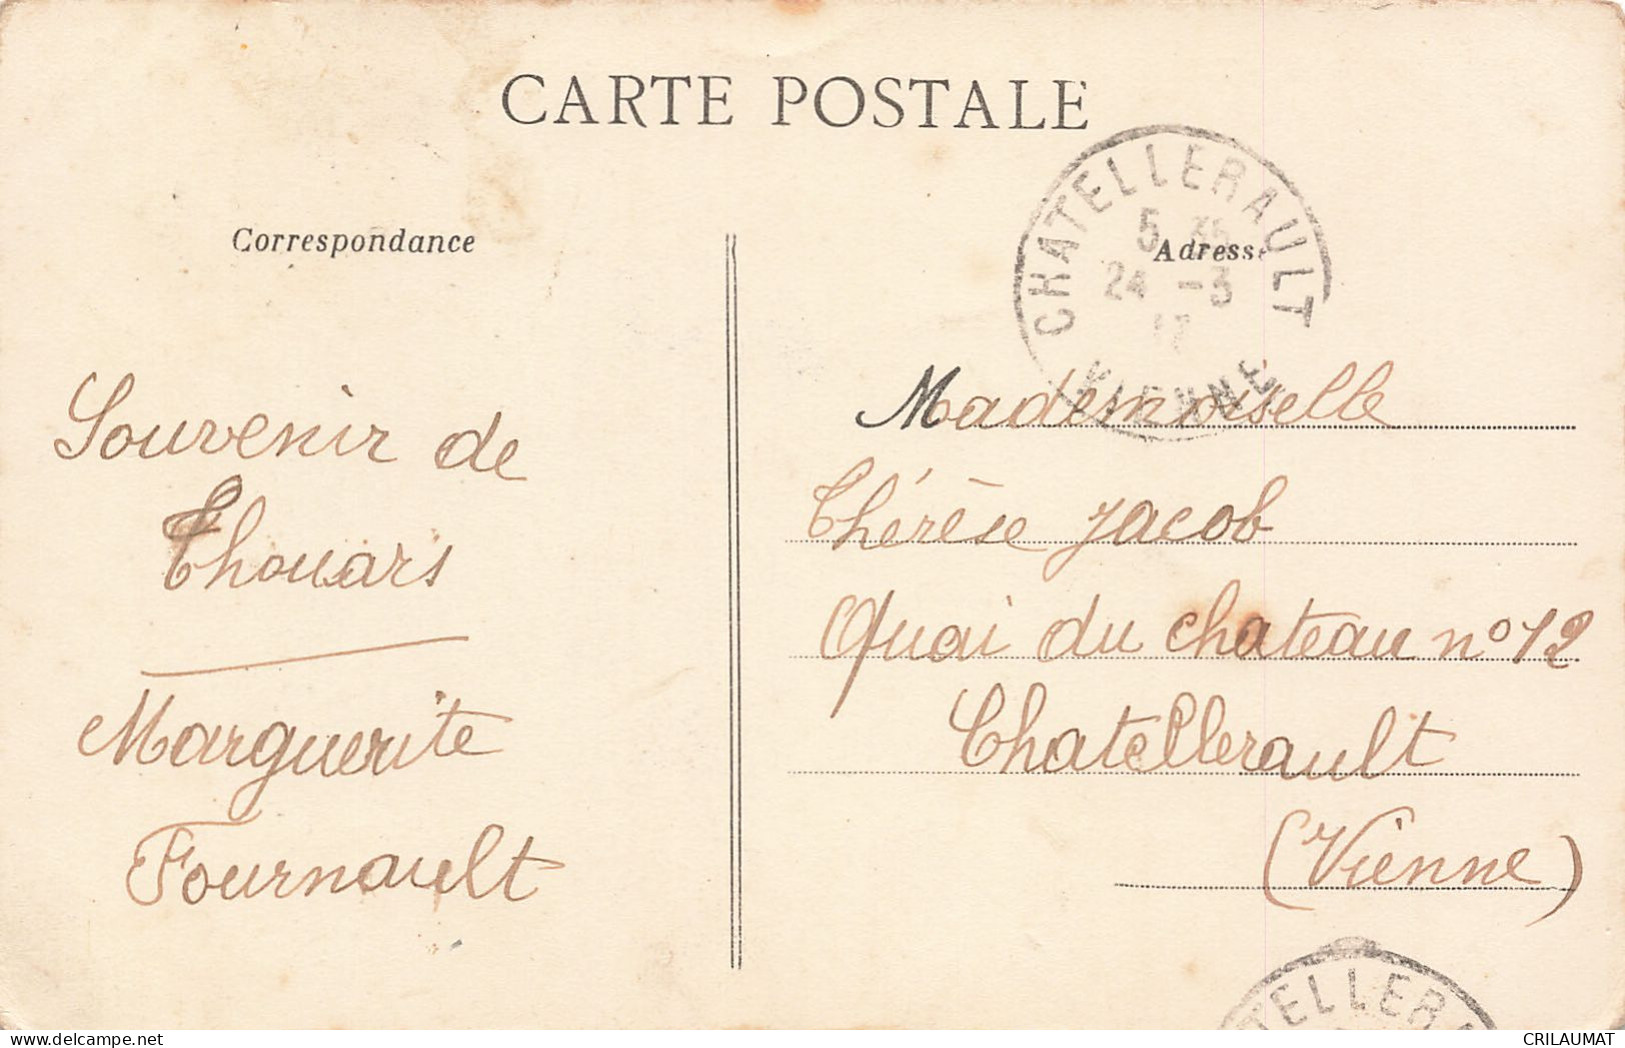 CARTE POSTALE
Correspondance
Adresse
CHATELLERAULT
5 35
24 -3
17
VIENNE
Souvenir de
Thouars
Marguerite
Fournault
Mademoiselle
Thérèse Jacob
Quai du chateau n° 12
Chatellerault
(Vienne)
TELLERA
CRILAUMAT